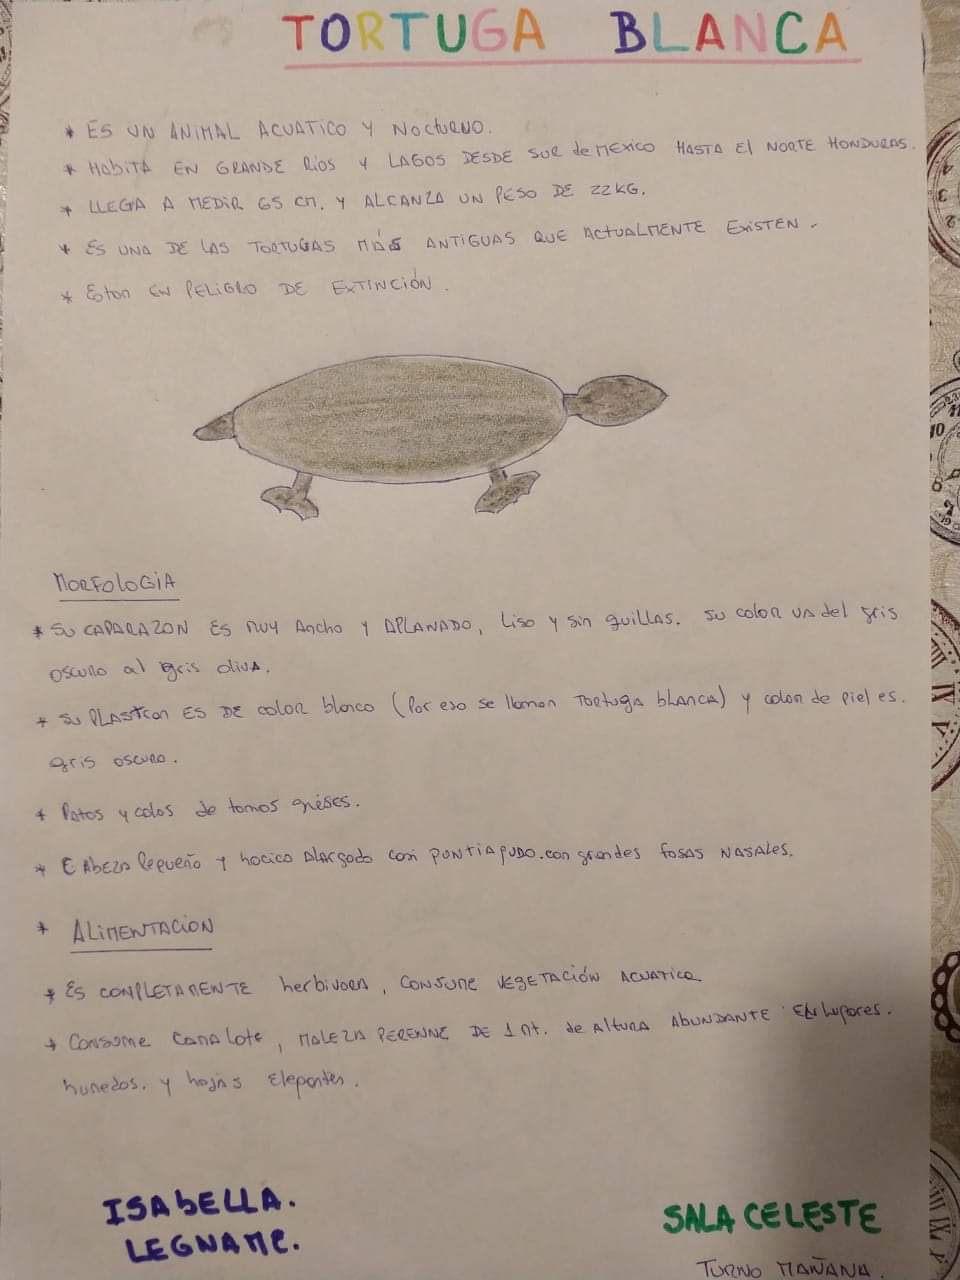 TORTUGA BLANCA
* ES UN ANIMAL ACUATICO Y NOCTURNO.
* HABITA EN GRANDE RÍOS Y LAGOS DESDE SUR de MEXICO HASTA El NORTE HONDURAS.
* LLEGA A MEDIR 65 cm. Y ALCANZA UN PESO DE 22KG.
* ES UNA DE LAS TORTUGAS MÁS ANTIGUAS QUE ACTUALMENTE EXISTEN.
* Estan EN PELIGRO DE EXTINCIÓN.
MORFOloGIA
* SU CAPARAZON ES MUY Ancho Y APLANADO, Liso y sin quillas. Su color va del gris
oscuro al gris oliva.
* SU PLAStron ES DE color blanco (Por eso se llaman TORtuga bLANCA) y color de piel es.
gris oscuro.
* Patas y colas de tonos grises.
* CAbeza Pequeño y hocico Alargado casi PUNTIAgudo. con grandes fosas NASAles.
* ALIMENTACION
* ES COMPLETAMENTE herbivora, CONSUME VEgETACIÓN ACUATICA
* Consume Canalote, MALEZA PERENNE DE 1 Mt. de ALTURA ABUNDANTE EN lugares.
humedos. y hojas
ISAbELLA.
LEGNAME.
SALA CELESTE
TURNO MAÑANA.